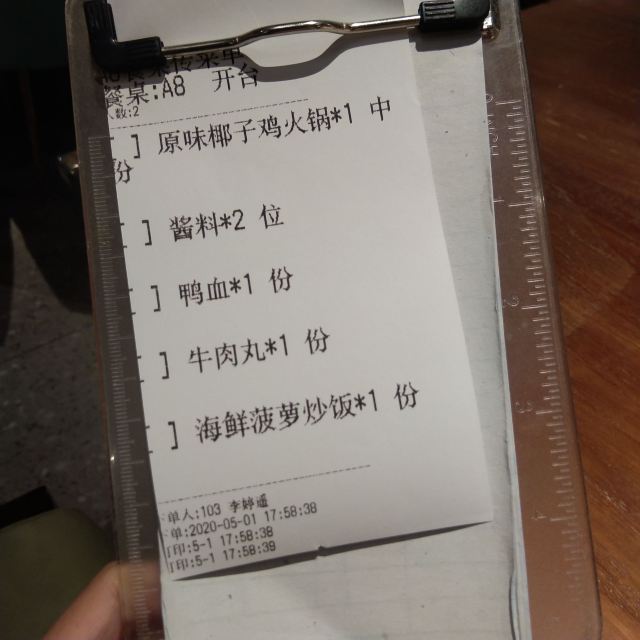 餐桌:A8 开台
数:2
] 原味椰子鸡火锅*1 中
份
] 酱料*2 位
] 鸭血*1 份
] 牛肉丸*1 份
] 海鲜菠萝炒饭*1 份
单人:103 李婷遥
单:2020-05-01 17:58:38
印:5-1 17:58:38
印:5-1 17:58:39